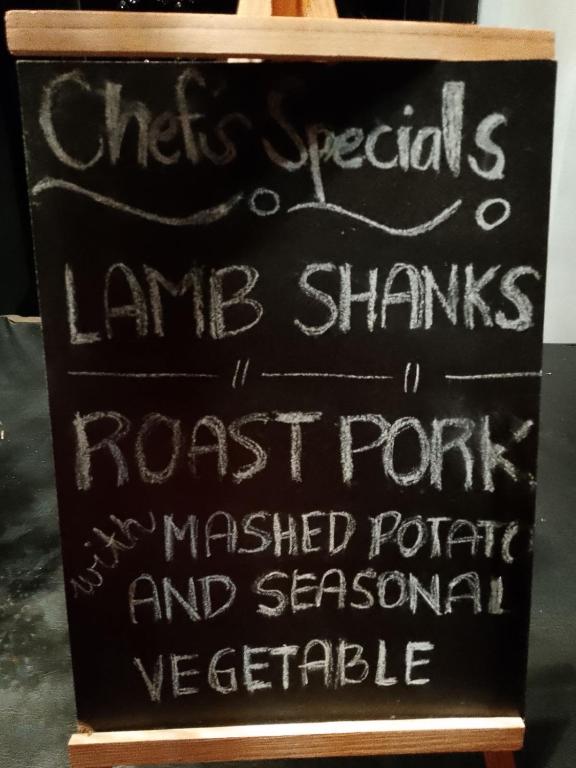 Chef's Specials
LAMB SHANKS
ROAST PORK
with MASHED POTATO
AND SEASONAL
VEGETABLE